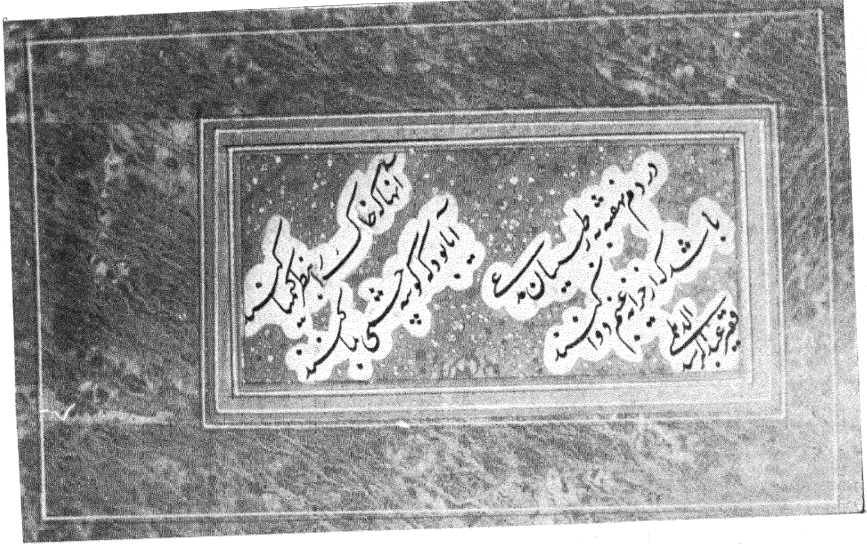 آنها که خاک را بنظر کیمیا کنند
آیا بود که گوشه چشمی بما کنند
دردم نهفته به ز طبیبان مدعی
باشد که از خزانه غیبم دوا کنند
فقیر عبدالرشید
الدیلمی